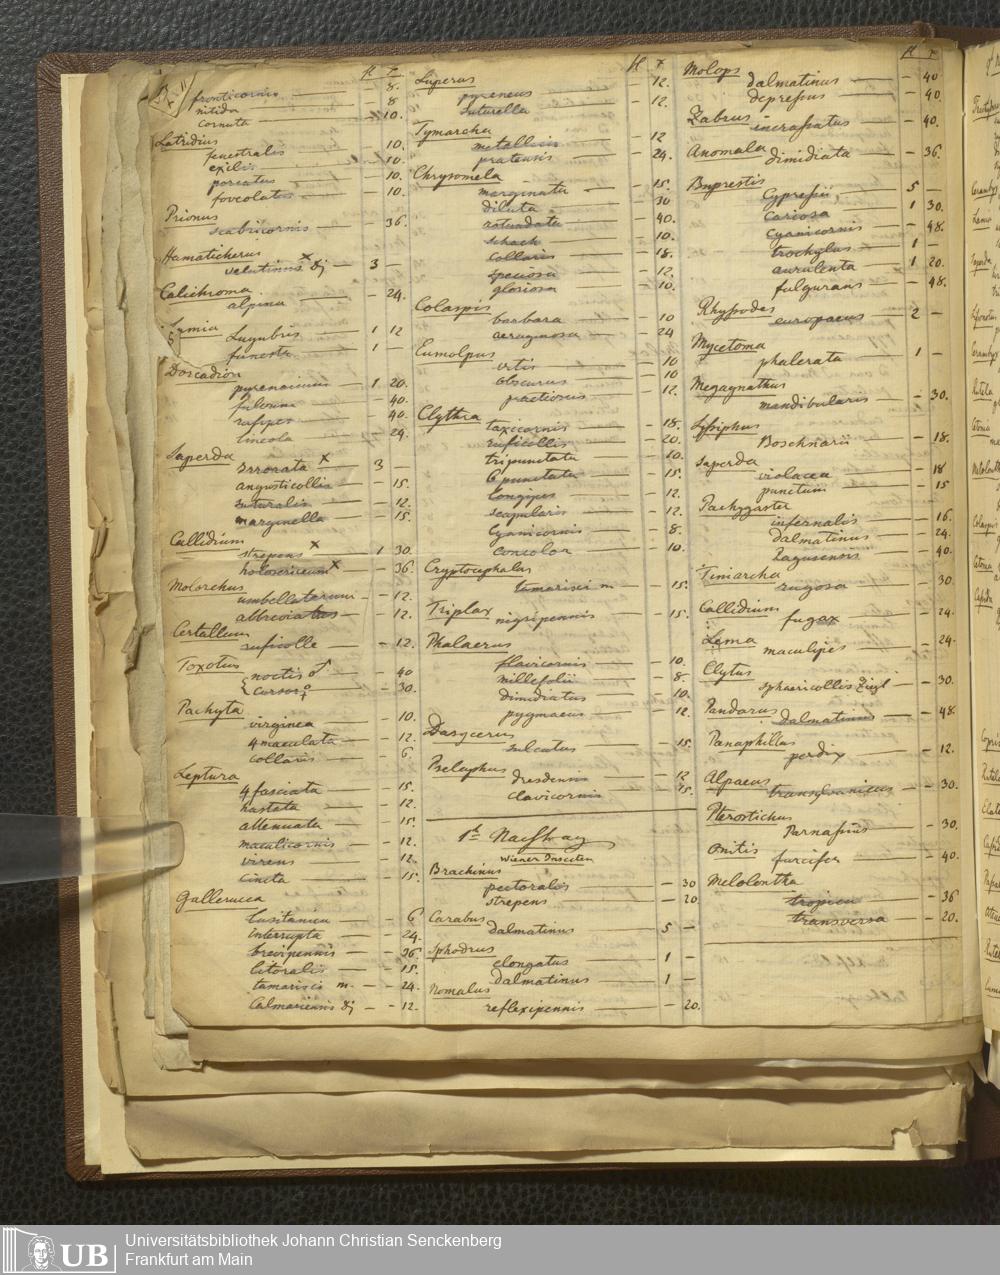 fl. x.
fronticornis — 8.
nitida — 8
cornuta — 10.
Latridius
fenestralis 10.
exilis 10.
porcatus — 10.
foveolatus — 10.
Prionus
scabricornis — 36.
Hamaticherus
velutinus × Dj — 3 —
Calichroma
alpina — 24.
Lamia
Lugubris — 1 12
funesta — 1 —
Dorcadion
pyrenaicum — 1 20.
fulvum — 40.
rufipes — 40.
lineola — 24.
Saperda
Errorata × — 3 —
angusticollis — 15.
suturalis — 12.
marginella — 15.
Callidium
strepens × — 1 30.
holosericeum × — 36.
Molorchus
umbellatarum — 12.
abbreviatus — 12.
Certallum
ruficolle — 12.
Toxotus
noctis ♂ — 40
Cursor ♀ — 30.
Pachyta
virginea — 10.
4maculata — 12.
collaris — 6.
Leptura
4fasciata — 15.
hastata — 12.
attenuata — 15.
maculicornis — 12.
virens — 12.
cincta — 15.
Galleruca
Lusitanica — 6
interrupta — 24.
brevipennis — 36
litoralis — 15.
tamariscis m. — 24.
Calmariensis Dj — 12.
fl. x.
Luperus
pyreneus — 12.
suturella — 12.
Tymarcha
metallica — 12
pratensis — 24.
Chrysomela
marginata — 15.
diluta — 30
rotundata — 40.
schach — 10.
collaris — 18.
speciosa — 12.
gloriosa — 10.
Colaspis
barbara — 10
aeruginosa — 24
Eumolpus
vitis — 10
obscurus — 10
praetiosus — 12.
Clythra
taxicornis — 18.
ruficollis — 20.
tripunctata — 10.
6punctata — 15.
longipes — 12.
scapularis — 12.
Cyanicornis — 8.
concolor — 10.
Cryptocephalus
tamarisci m — 15.
Triplax
nigripennis — 15.
Phalacrus
flavicornis — 10.
millefolii — 8.
dimidiatus — 10.
pygmaeus — 12.
Dasycerus
sulcatus — 15.
Pselaphus
dresdensis — 12
clavicornis — 15.
Wiener Insecten
Brachinus
pectoralis — 30
strepens — 20
Carabus
dalmatinus 5 —
Sphodrus
elongatus — 1 —
dalmatinus — 1 —
Nomalus
reflexipennis — 20.
fl. x.
Molops
dalmatinus — 40
depressus — 40.
Zabrus
incrassatus — 40.
Anomala
dimidiata — 36.
Buprestis
Cypressii, — 5 —
Cariosa — 1 30.
cyanicornis — 48.
trochylus — 1 —
aurulenta — 1 20.
fulgurans — 48.
Rhyssodes
europaeus — 2 —
Mycetoma
phalerata 1 —
Megagnathus
mandibularis — 30.
Sysiphus
Boschnarii — 18.
Saperda
violacea — 18
punctum — 15
Pachygaster
infernalis — 16.
dalmatinus — 24.
Ragusensis — 40.
Timarcha
rugosa — 30
Callidium
fugax — 24.
Lema
maculipes — 24.
Clytus
sphaericollis Ziegl — 30.
Pandarus
dalmatinus — 48.
Panaphillus
perdix — 12.
Alpaeus
transylvanicus — 30.
Pterostichus
Parnassius — 30.
Onitis
furcifer — 40.
Melolontha
tropica — 36
transversa — 20.
UB
Universitätsbibliothek Johann Christian Senckenberg
Frankfurt am Main